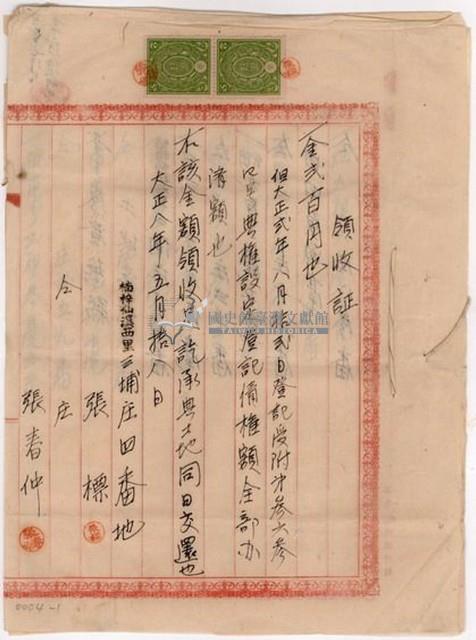 領收証
一金弍百円也
但大正弍年八月拾弍日登記受附第參六參
口号典權設定登記債權額全部办
濟額也
右該金額領收ヲ訖承典土地同日交還也
大正八年五月拾八日
楠梓仙溪西里三埔庄四番地
張標
仝庄
張春仲
國史館臺灣文獻館
TAIWAN HISTORICA
0004-1